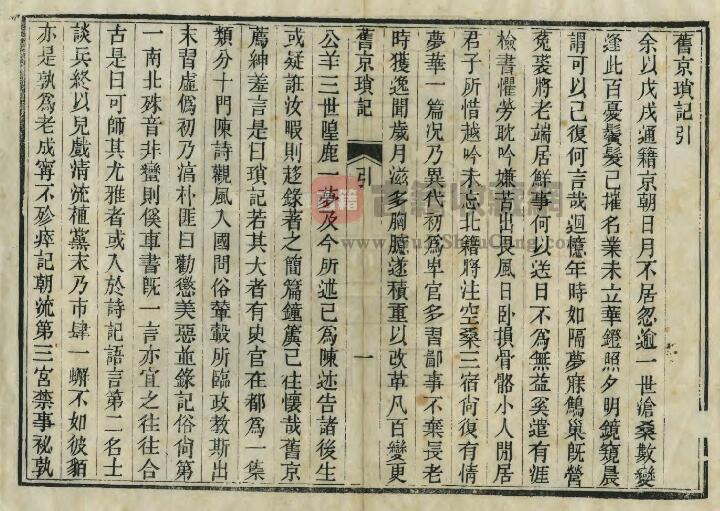 舊京瑣記引
余以戊戌通籍京朝日月不居忽逾一世滄桑數變
逢此百憂鬢髮已摧名業未立華鐙照夕明鏡窺晨
謂可以已復何言哉迴憶年時如隔夢寐鷦巢旣營
菟裘將老端居鮮事何以送日不爲無益奚遣有涯
檢書懼勞耽吟嫌苦出畏風日卧損骨骼小人閒居
君子所惜越吟未忘北籍將注空桑三宿尙復有情
夢華一篇況乃異代初爲卑官多習鄙事不棄長老
時獲逸聞歲月滋多胸臆遂積重以改革凡百變更
舊京瑣記
引
一
公羊三世隍鹿一夢及今所述已爲陳迹告諸後生
或疑誑汝暇則迻錄著之簡篇鐘簴已往懷哉舊京
薦紳羞言是曰瑣記若其大者有史官在都爲一集
類分十門陳詩觀風入國問俗輦轂所臨政教斯出
末習虛僞初乃滈朴匪曰勸懲美惡並錄記俗尙第
一南北殊音非蠻則傒車書旣一言亦宜之往往合
古是曰可師其尤雅者或入於詩記語言第二名士
談兵終以兒戲清流植黨末乃市肆一蠏不如彼貊
亦是孰爲老成寗不殄瘁記朝流第三宮禁事祕孰